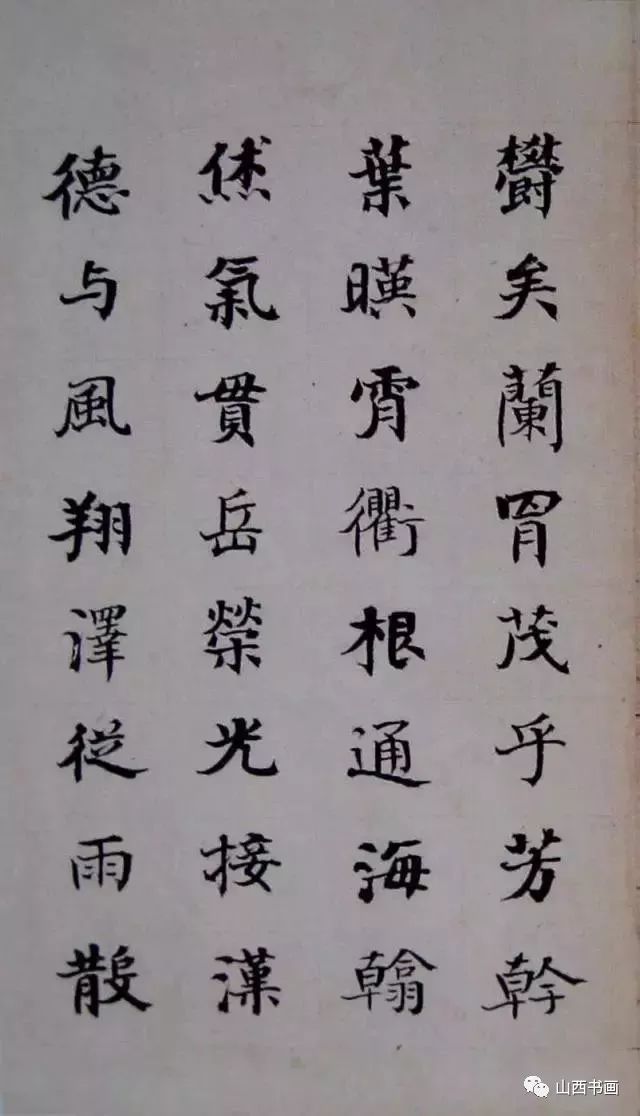 欝矣蘭胄茂乎芳幹
葉暎霄衢根通海翰
烋氣貫岳榮光接漢
德与風翔澤従雨散
山西书画